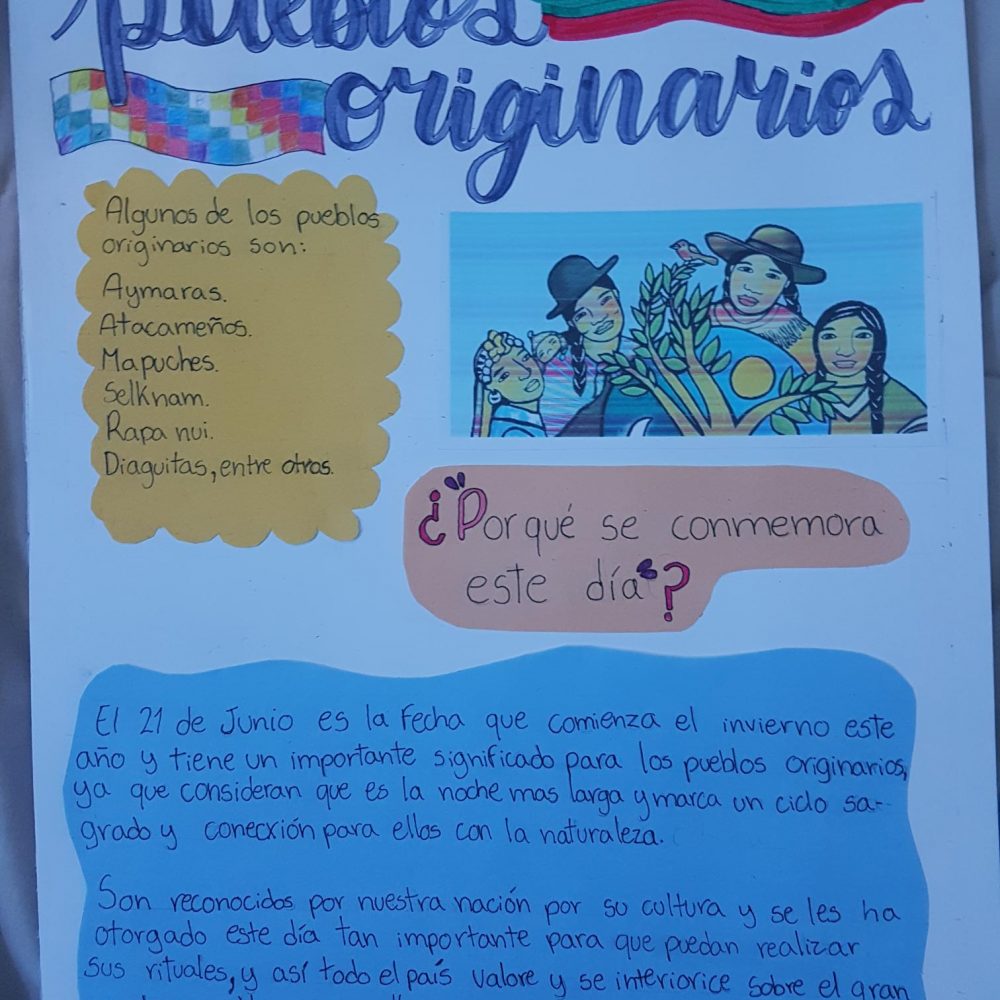 pueblos
originarios
Algunos de los pueblos
originarios son:
Aymaras.
Atacameños.
Mapuches.
Selknam.
Rapa nui.
Diaguitas, entre otros.
¿Por qué se conmemora
este día?
El 21 de Junio es la fecha que comienza el invierno este
año y tiene un importante significado para los pueblos originarios,
ya que consideran que es la noche mas larga y marca un ciclo sa-
grado y conecxión para ellos con la naturaleza.
Son reconocidos por nuestra nación por su cultura y se les ha
otorgado este día tan importante para que puedan realizar
sus rituales, y así todo el país valore y se interiorice sobre el gran